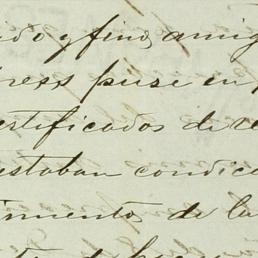 ido y fino amig
ress puse en
ertificados de re
estaban condice
imiento de la